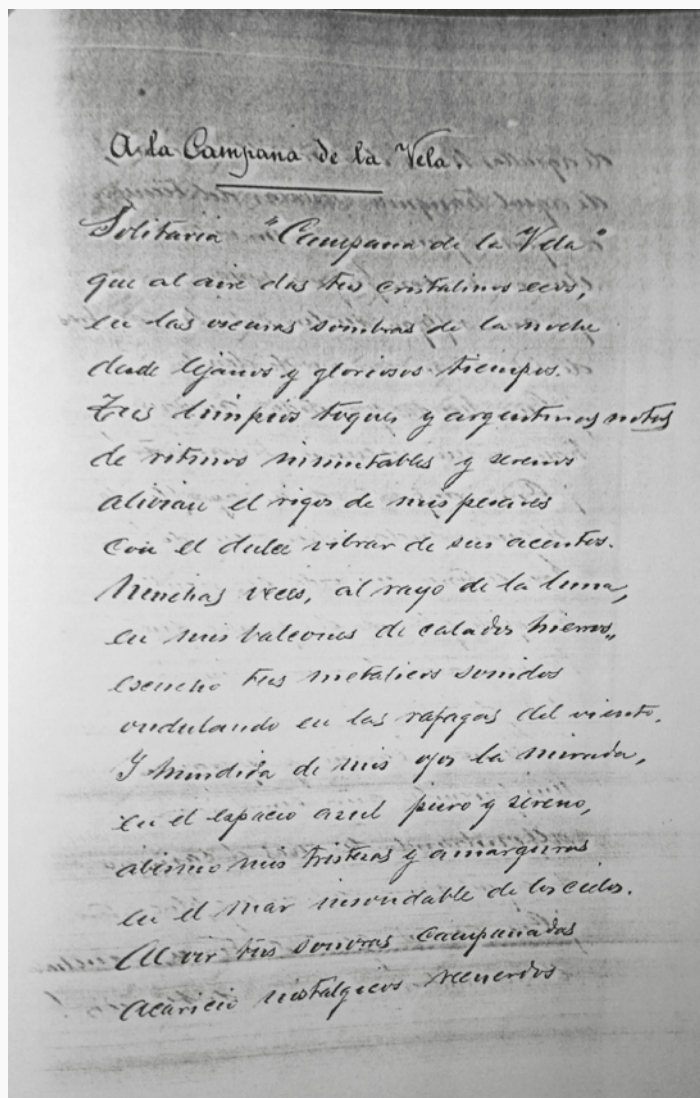 A la Campana de la Vela.
Solitaria "Campana de la Vela"
que al aire das tus cristalinos ecos,
en las oscuras sombras de la noche
desde lejanos y gloriosos tiempos.
Tus limpios toques y argentinas notas
de ritmos inmutables y serenos
alivian el rigor de mis pesares
con el dulce vibrar de sus acentos.
Muchas veces, al rayo de la luna,
en mis balcones de calados hierros,
escucho tus metalicos sonidos
ondulando en las rafagas del viento.
Y hundida de mis ojos la mirada,
en el espacio azul puro y sereno,
abismo mis tristezas y amarguras
en el mar insondable de los cielos.
Al oir tus sonoras campanadas
acaricio nostalgicos recuerdos